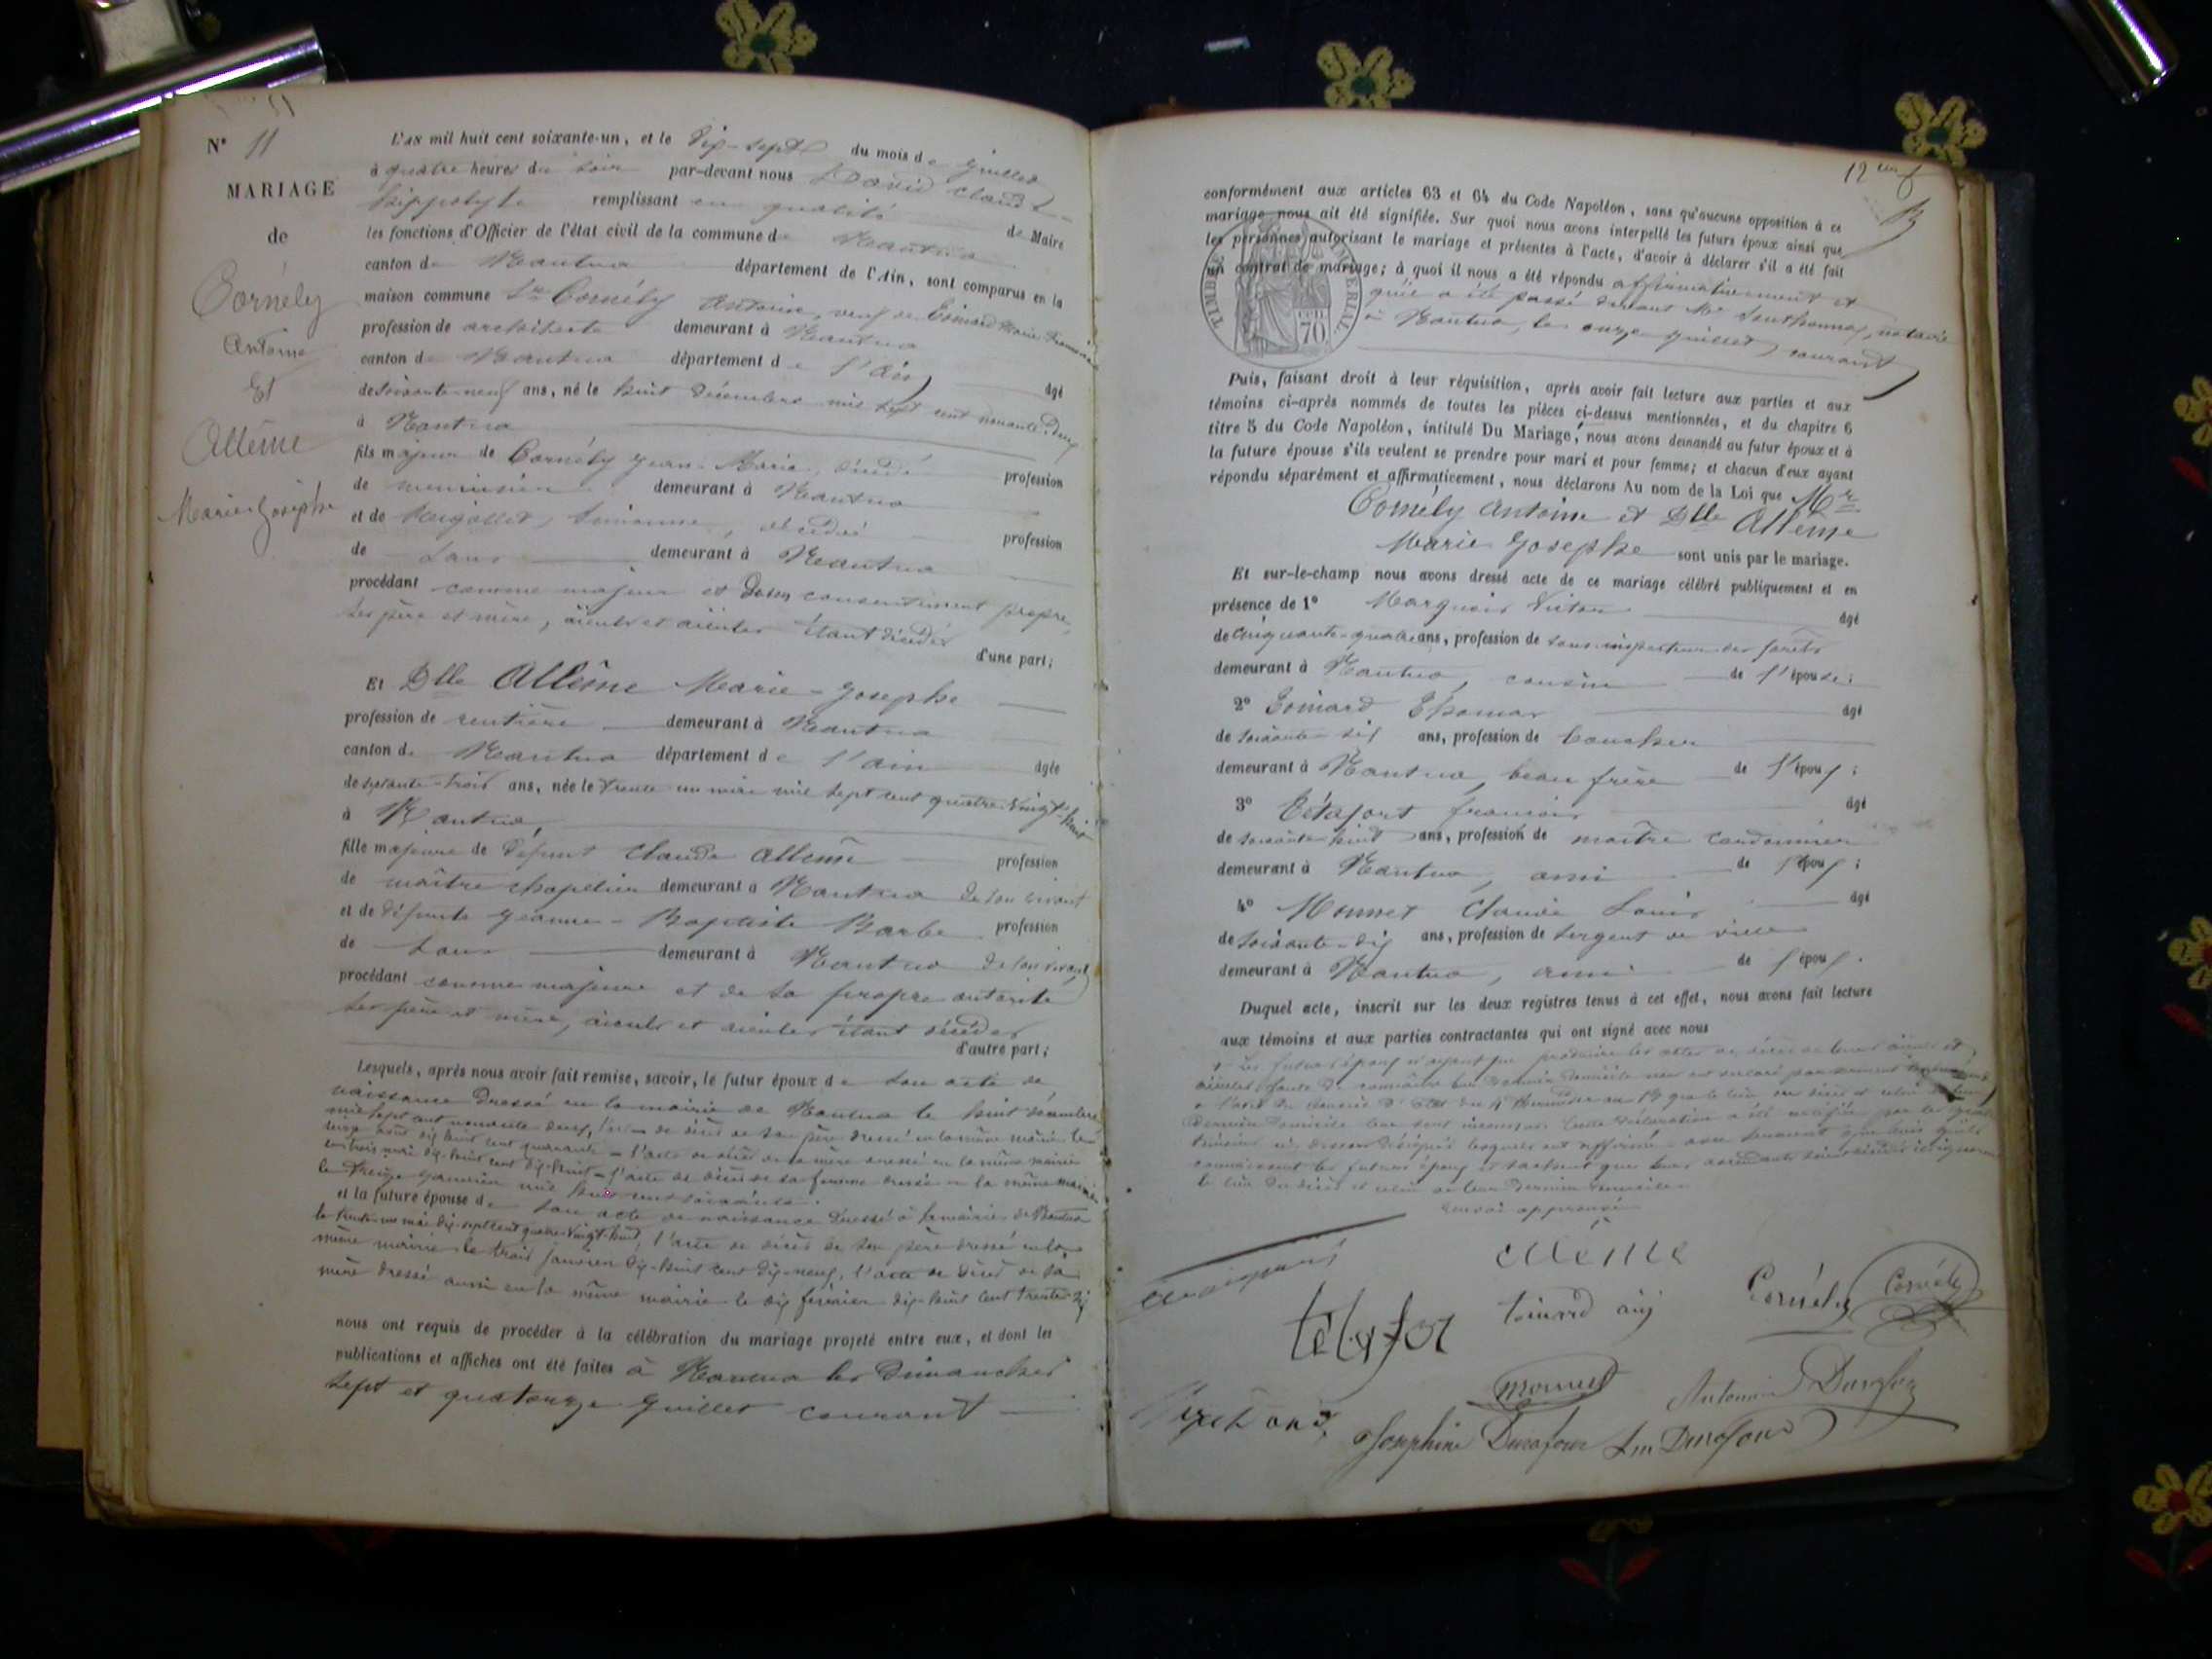 N° 11
MARIAGE
de
Cornély
Antoine
Et
Allême
Marie-Josephe
L'an mil huit cent soixante-un, et le dix-sept du mois de juillet
à quatre heures du soir par-devant nous David Claude
hippolyte remplissant en qualité de Maire
les fonctions d'Officier de l'état civil de la commune de Nantua
canton de Nantua département de l'Ain, sont comparus en la
maison commune Sr Cornély Antoine, veuf de Marie
profession de architecte demeurant à Nantua
canton de Nantua département de l'ain âgé
de soixante-neuf ans, né le huit décembre mil sept cent nonante deux
à Nantua
fils majeur de Cornély Jean-Marie, décédé profession
de menuisier demeurant à Nantua
et de décédée profession
de Sans demeurant à Nantua
procédant comme majeur et de son consentement propre,
ses père et mère, aïeuls et aïeules étant décédés
d'une part;
Et Dlle Allême Marie-Josephe
profession de rentière demeurant à Nantua
canton de Nantua département de l'ain âgée
de septante-trois ans, née le trente un mai mil sept cent quatre-vingt-huit
à Nantua,
fille majeure de défunt Claude Allême profession
de maître chapelier demeurant à Nantua de son vivant
et de défunte Jeanne-Baptiste Barbe profession
de Sans demeurant à Nantua de son vivant
procédant comme majeure et de sa propre autorité
ses père et mère, aïeuls et aïeules étant décédés
d'autre part;
Lesquels, après nous avoir fait remise, savoir, le futur époux de son acte de
naissance dressé en la mairie de Nantua le huit décembre
mil sept cent nonante deux, de décès de son père dressé en la même mairie le
août dix huit cent quarante = l'acte de décès de sa mère dressé en la même mairie
mai dix-huit cent dix-huit = l'acte de décès de sa femme dressé en la même mairie
le treize janvier mil huit cent soixante.
et la future épouse de son acte de naissance dressé à la mairie de Nantua
le trente-un mai dix-sept cent quatre-vingt-huit, l'acte de décès de son père dressé en la
même mairie le trois janvier dix-huit cent dix-neuf, l'acte de décès de sa
mère dressé aussi en la même mairie le dix février dix-huit cent trente
nous ont requis de procéder à la célébration du mariage projeté entre eux, et dont les
publications et affiches ont été faites à Nantua les dimanches
sept et quatorze juillet courant
conformément aux articles 63 et 64 du Code Napoléon, sans qu'aucune opposition à ce
mariage nous ait été signifiée. Sur quoi nous avons interpellé les futurs époux ainsi que
les personnes autorisant le mariage et présentes à l'acte, d'avoir à déclarer s'il a été fait
un contrat de mariage; à quoi il nous a été répondu affirmativement et
qu'il a été passé devant Me notaire
à Nantua, le onze juillet courant
TIMBRE IMPÉRIAL
70
Puis, faisant droit à leur réquisition, après avoir fait lecture aux parties et aux
témoins ci-après nommés de toutes les pièces ci-dessus mentionnées, et du chapitre 6
titre 5 du Code Napoléon, intitulé Du Mariage, nous avons demandé au futur époux et à
la future épouse s'ils veulent se prendre pour mari et pour femme; et chacun d'eux ayant
répondu séparément et affirmativement, nous déclarons Au nom de la Loi que Mr
Cornély Antoine et Dlle Allême
Marie Josephe sont unis par le mariage.
Et sur-le-champ nous avons dressé acte de ce mariage célébré publiquement et en
présence de 1° âgé
de cinquante-quatre ans, profession de sous inspecteur des forêts
demeurant à Nantua, cousin de l'épouse;
2° Thomas âgé
de soixante ans, profession de boucher
demeurant à Nantua, beau frère de l'époux;
3° Tétafort françois âgé
de soixante huit ans, profession de maître cordonnier
demeurant à Nantua, ami de l'époux;
4° Monnet Claude Louis âgé
de soixante-dix ans, profession de sergent de ville
demeurant à Nantua, ami de l'époux.
Duquel acte, inscrit sur les deux registres tenus à cet effet, nous avons fait lecture
aux témoins et aux parties contractantes qui ont signé avec nous
les futurs époux n'ayant pu produire les actes de décès de leurs aïeuls et
aïeules, faute de connaître leur dernier domicile
à l'avis du Conseil d'Etat du 4 thermidor an 13 que le lieu du décès et celui du
dernier domicile leur sont inconnus. Cette déclaration a été certifiée par les quatre
témoins ci-dessus désignés lesquels ont affirmé avec serment que quoi qu'ils
connaissent les futurs époux
le lieu du décès et celui de leur dernier domicile.
renvoi approuvé
alleme
tétafor
Cornély
Cornély
monnet
Josephine Durafour